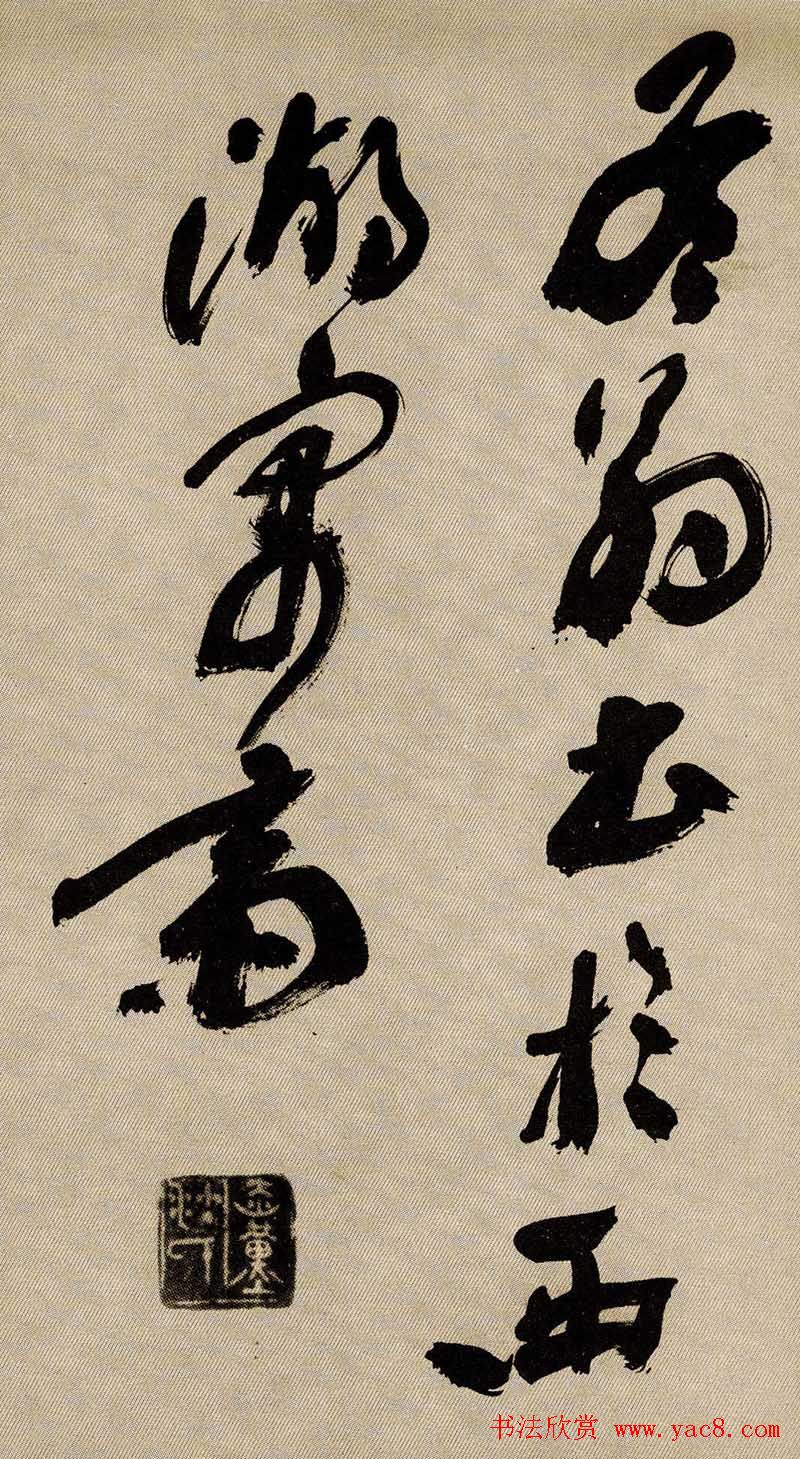 翁書於西
湖寓齋
书法欣赏 www.yac8.com